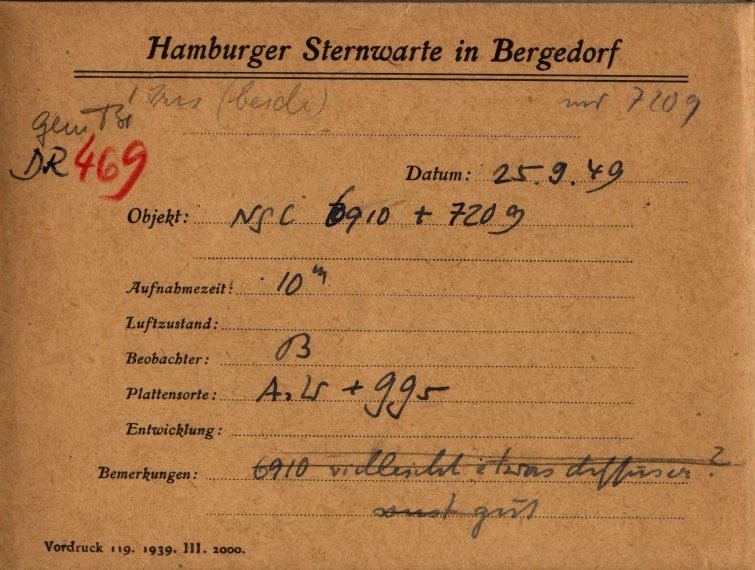 Hamburger Sternwarte in Bergedorf
(beide) nur 7209
gem
DR 469
Datum: 25.9.49
Objekt: NGC 6910 + 7209
Aufnahmezeit: 10 m
Luftzustand:
Beobachter: B
Plattensorte: + GG5
Entwicklung:
Bemerkungen: 6910 vielleicht etwas diffuser?
sonst gut
Vordruck 119. 1939. III. 2000.